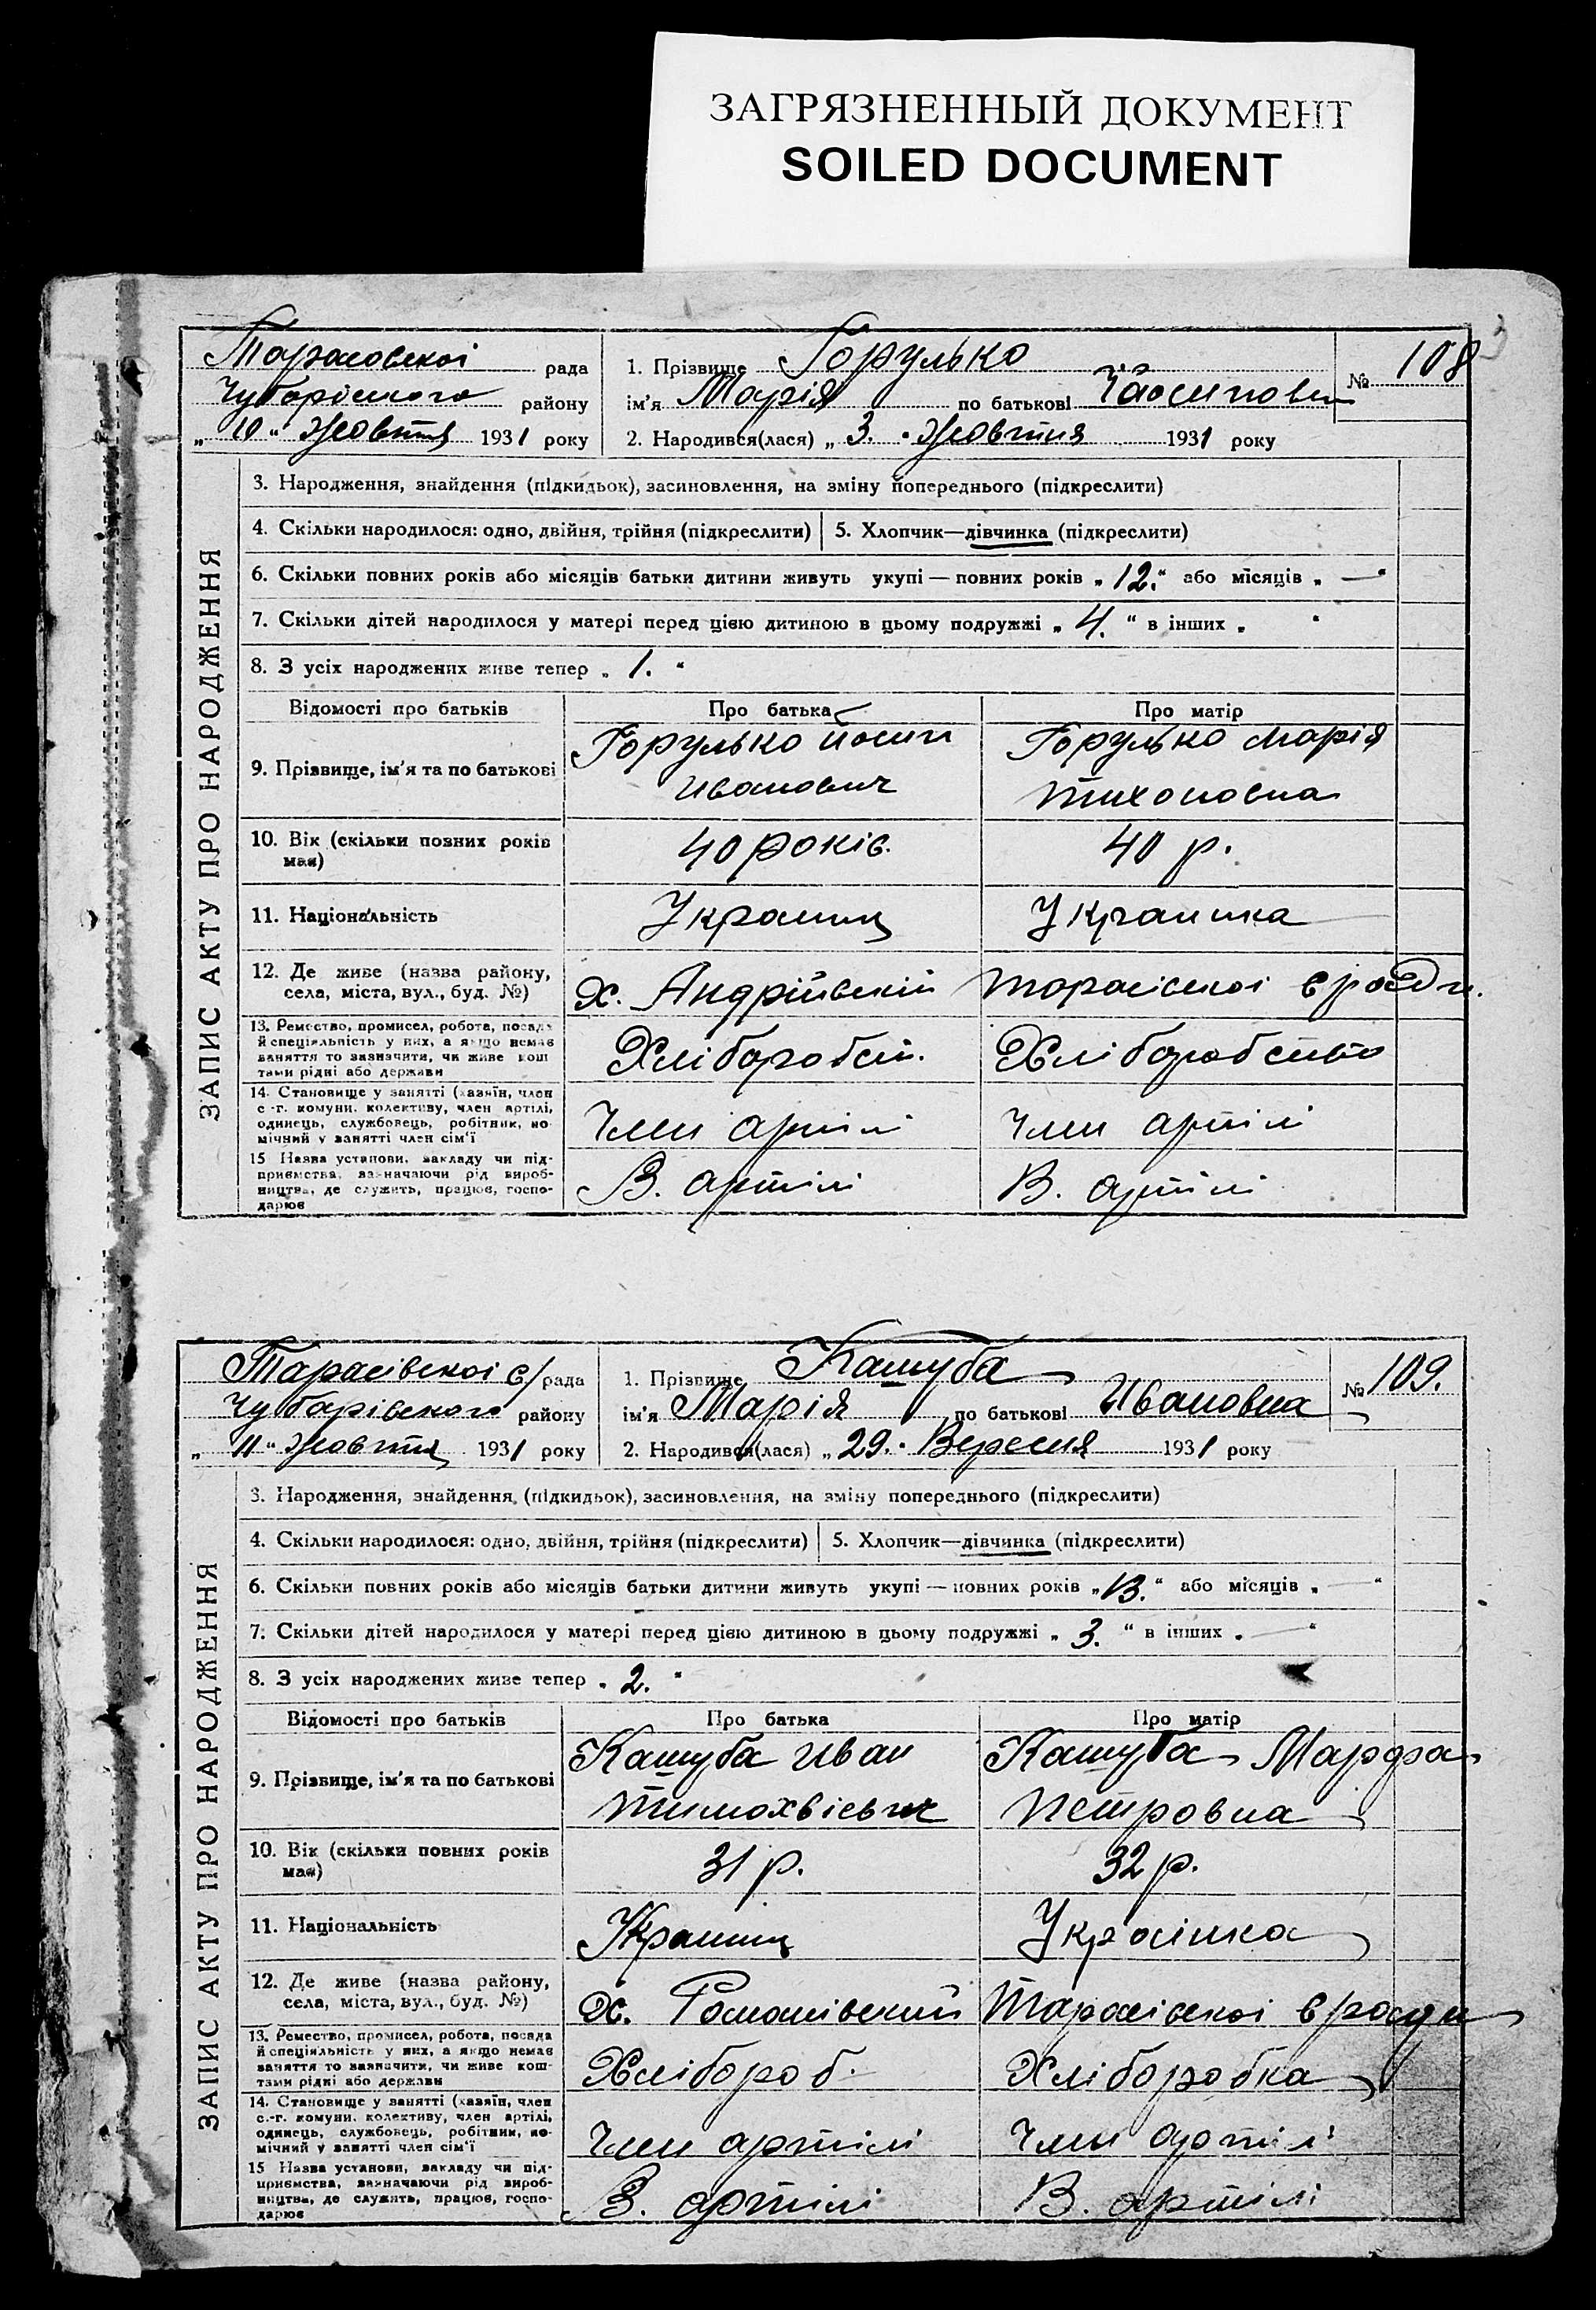 ЗАГРЯЗНЕННЫЙ ДОКУМЕНТ
SOILED DOCUMENT
3
Тарасовскоі рада
Чубарівського району
„ 10 " Жовтня 1931 року
1. Прізвище Горулько
ім'я Марія по батькові Йосиповна
2. Народився(лася) „ 3. " Жовтня 1931 року
№ 108
ЗАПИС АКТУ ПРО НАРОДЖЕННЯ
3. Народження, знайдення (підкидьок), засиновлення, на зміну попереднього (підкреслити)
4. Скільки народилося: одно, двійня, трійня (підкреслити) 5. Хлопчик—дівчинка (підкреслити)
6. Скільки повних років або місяців батьки дитини живуть укупі — повних років „ 12. " або місяців „ — "
7. Скільки дітей народилося у матері перед цією дитиною в цьому подружжі „ 4. " в інших „ "
8. З усіх народжених живе тепер „ 1. "
Відомості про батьків Про батька Про матір
9. Прізвище, ім'я та по батькові
Горулько Йосип
Иванович
Горулько Марія
Тихоновна
10. Вік (скільки повних років
має)
40 років.
40 р.
11. Національність
Украинц
Украинка
12. Де живе (назва району,
села, міста, вул., буд. №)
х. Андрійвский Тарасівскоі с ради.
13. Ремество, промисел, робота, посада
й спеціяльність у них, а якщо немає
заняття то зазначити, чи живе кош
тами рідні або держави
Хліборобст.
Хліборобство
14. Становище у занятті (хазяїн, член
с.-г. комуни, колективу, член артілі,
одинець, службовець, робітник, по-
мічний у занятті член сім'ї
Член артілі
Член артілі
15 Назва установи, закладу чи під-
приємства, зазначаючи рід вироб-
ництва, де служить, працює, госпо-
дарює
В. артілі
В. артілі
Тарасівскоі с/рада
Чубарівского району
„ 11 " Жовтня 1931 року
1. Прізвище Кашуба
ім'я Марія по батькові Ивановна
2. Народився(лася) „ 29. " Вересня 1931 року
№ 109.
ЗАПИС АКТУ ПРО НАРОДЖЕННЯ
3. Народження, знайдення, (підкидьок), засиновлення, на зміну попереднього (підкреслити)
4. Скільки народилося: одно, двійня, трійня (підкреслити) 5. Хлопчик—дівчинка (підкреслити)
6. Скільки повних років або місяців батьки дитини живуть укупі — повних років „ 13. " або місяців „ — "
7. Скільки дітей народилося у матері перед цією дитиною в цьому подружжі „ 3. " в інших „ — "
8. З усіх народжених живе тепер „ 2. "
Відомості про батьків Про батька Про матір
9. Прізвище, ім'я та по батькові
Кашуба Иван
Тимохвієвич
Кашуба Марфа
Петровна
10. Вік (скільки повних років
має)
31 р.
32 р.
11. Національність
Украинц
Україінка
12. Де живе (назва району,
села, міста, вул., буд. №)
х. Романівский Тарасівскоі с ради
13. Ремество, промисел, робота, посада
й спеціяльність у них, а якщо немає
заняття то зазначити, чи живе кош-
тами рідні або держави
Хлібороб.
Хліборобка
14. Становище у занятті (хазяїн, член
с.-г. комуни, колективу, член артілі,
одинець, службовець, робітник, по-
мічний у занятті член сім'ї
Член артілі
Член артілі
15 Назва установи, закладу чи під-
приємства, зазначаючи рід вироб-
ництва, де служить, працює, госпо-
дарює
В. артілі
В. артілі